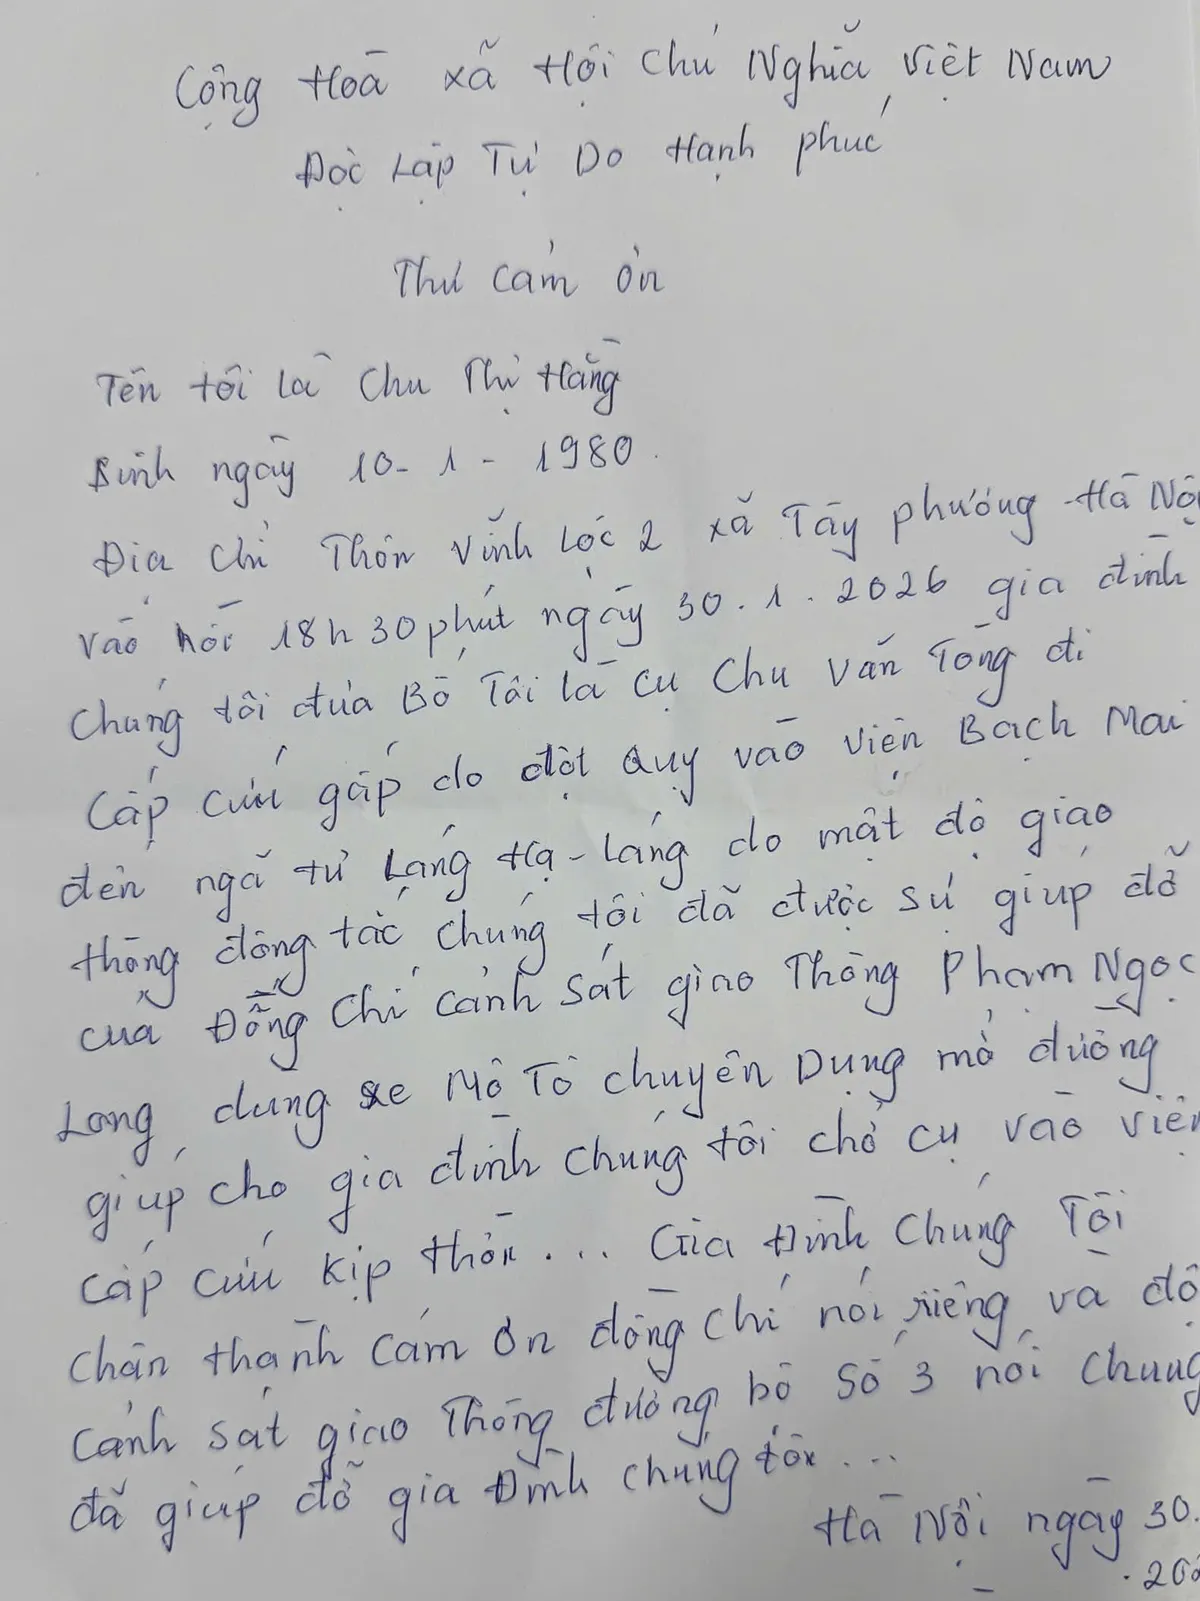 Cộng Hoà xã Hội Chủ Nghĩa Việt Nam
Độc Lập Tự Do Hạnh phúc
Thư cảm ơn
Tên tôi là Chu Thị Hằng
Sinh ngày 10-1-1980.
Địa chỉ Thôn Vĩnh Lộc 2 xã Tây phương Hà Nội
vào hồi 18h30 phút ngày 30.1.2026 gia đình
chúng tôi đưa Bố Tôi là cụ Chu Văn Tòng đi
cấp cứu gấp do đột quỵ vào viện Bạch Mai
đến ngã tư Láng Hạ - Láng do mật độ giao
thông đông tắc, chúng tôi đã được sự giúp đỡ
của Đồng Chí cảnh sát giao Thông Phạm Ngọc
Long dùng xe Mô Tô chuyên Dụng mở đường
giúp cho gia đình chúng tôi chở cụ vào viện
cấp cứu kịp thời... Gia Đình Chúng Tôi
chân thành cảm ơn đồng chí nói riêng và đội
cảnh sát giao Thông đường bộ Số 3 nói Chung
đã giúp đỡ gia Đình chúng tôi...
Hà Nội ngày 30.
.202